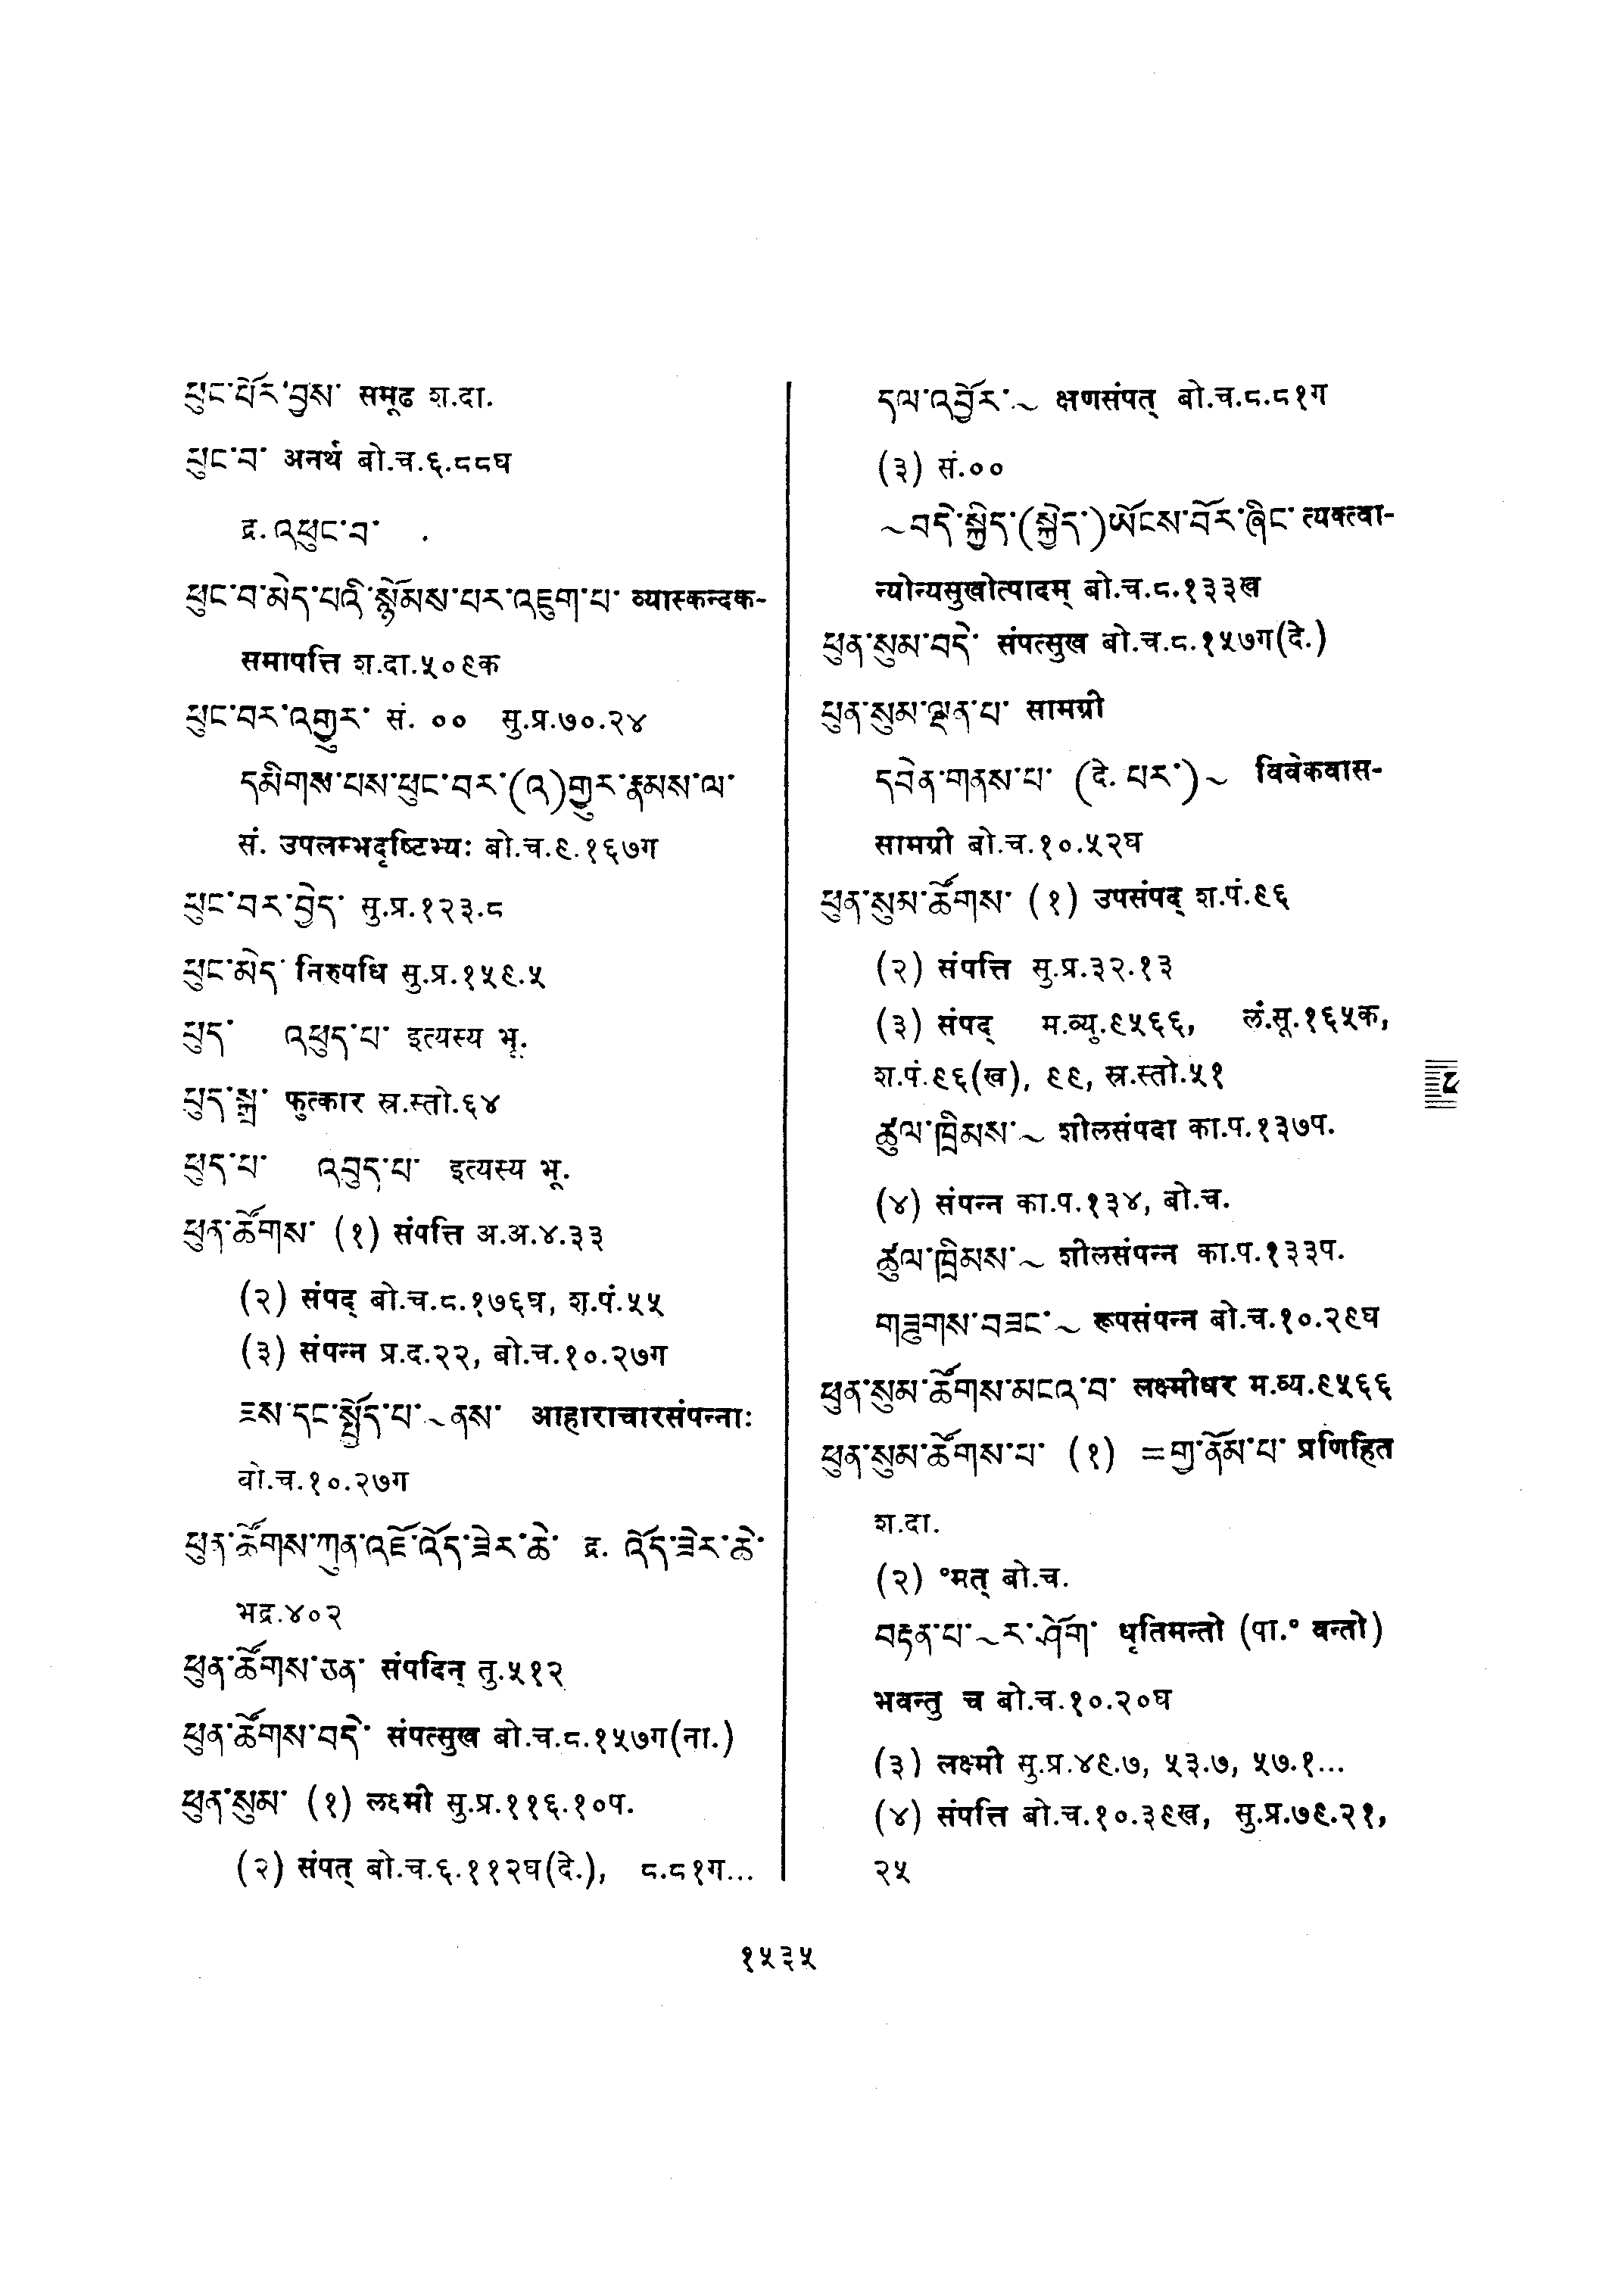 ཕུང་པོར་བྱས་ समूढ श.दा.
ཕུང་བ་ अनर्थ बो.च.६.८८घ
द्र. འཕུང་བ་
ཕུང་བ་མེད་པའི་སྙོམས་པར་འཇུག་པ་ व्यास्कन्दक-
समापत्ति श.दा.५०९क
ཕུང་བར་འགྱུར་ सं. ०० सु.प्र.७०.२४
དམིགས་པས་ཕུང་བར་(འ)གྱུར་རྣམས་ལ་
सं. उपलम्भदृष्टिभ्यः बो.च.९.१६७ग
ཕུང་བར་བྱེད་ सु.प्र.१२३.८
ཕུང་མེད་ निरुपधि सु.प्र.१५९.५
ཕུད་ འཕུད་པ་ इत्यस्य भू.
ཕུད་སྒྲ་ फुत्कार स्र.स्तो.६४
ཕུད་པ་ འབུད་པ་ इत्यस्य भू.
ཕུན་ཚོགས་ (१) संपत्ति अ.अ.४.३३
(२) संपद् बो.च.८.१७६घ, श.पं.५५
(३) संपन्न प्र.द.२२, बो.च.१०.२७ग
ཟས་དང་སྤྱོད་པ་~ནས་ आहाराचारसंपन्नाः
बो.च.१०.२७ग
ཕུན་ཚོགས་ཀུན་འཛོ་འོད་ཟེར་ཆེ་ द्र. འོད་ཟེར་ཆེ་
भद्र.४०२
ཕུན་ཚོགས་ཅན་ संपदिन् तु.५१२
ཕུན་ཚོགས་བདེ་ संपत्सुख बो.च.८.१५७ग(ना.)
ཕུན་སུམ་ (१) लक्ष्मी सु.प्र.११६.१०प.
(२) संपत् बो.च.६.११२घ(दे.), ८.८१ग...
དལ་འབྱོར་~ क्षणसंपत् बो.च.८.८१ग
(३) सं.००
~བདེ་སྐྱིད་(སྐྱེད་)ཡོངས་བོར་ཞིང་ त्यक्त्वा-
न्योन्यसुखोत्पादम् बो.च.८.१३३ख
ཕུན་སུམ་བདེ་ संपत्सुख बो.च.८.१५७ग(दे.)
ཕུན་སུམ་ལྡན་པ་ सामग्री
དབེན་གནས་པ་ (दे. པར་)~ विवेकवास-
सामग्री बो.च.१०.५२घ
ཕུན་སུམ་ཚོགས་ (१) उपसंपद् श.पं.९६
(२) संपत्ति सु.प्र.३२.१३
(३) संपद् म.व्यु.९५६६, लं.सू.१६५क,
श.पं.९६(ख), ९९, स्र.स्तो.५१
ཚུལ་ཁྲིམས་~ शीलसंपदा का.प.१३७प.
(४) संपन्न का.प.१३४, बो.च.
ཚུལ་ཁྲིམས་~ शीलसंपन्न का.प.१३३प.
གཟུགས་བཟང་~ रूपसंपन्न बो.च.१०.२९घ
ཕུན་སུམ་ཚོགས་མངའ་བ་ लक्ष्मीधर म.व्य.९५६६
ཕུན་སུམ་ཚོགས་པ་ (१) =གྱ་ནོམ་པ་ प्रणिहित
श.दा.
(२) °मत् बो.च.
བརྟན་པ་~ར་ཤོག་ धृतिमन्तो (पा.° वन्तो)
भवन्तु च बो.च.१०.२०घ
(३) लक्ष्मी सु.प्र.४९.७, ५३.७, ५७.१...
(४) संपत्ति बो.च.१०.३९ख, सु.प्र.७९.२१,
२५
१५३५